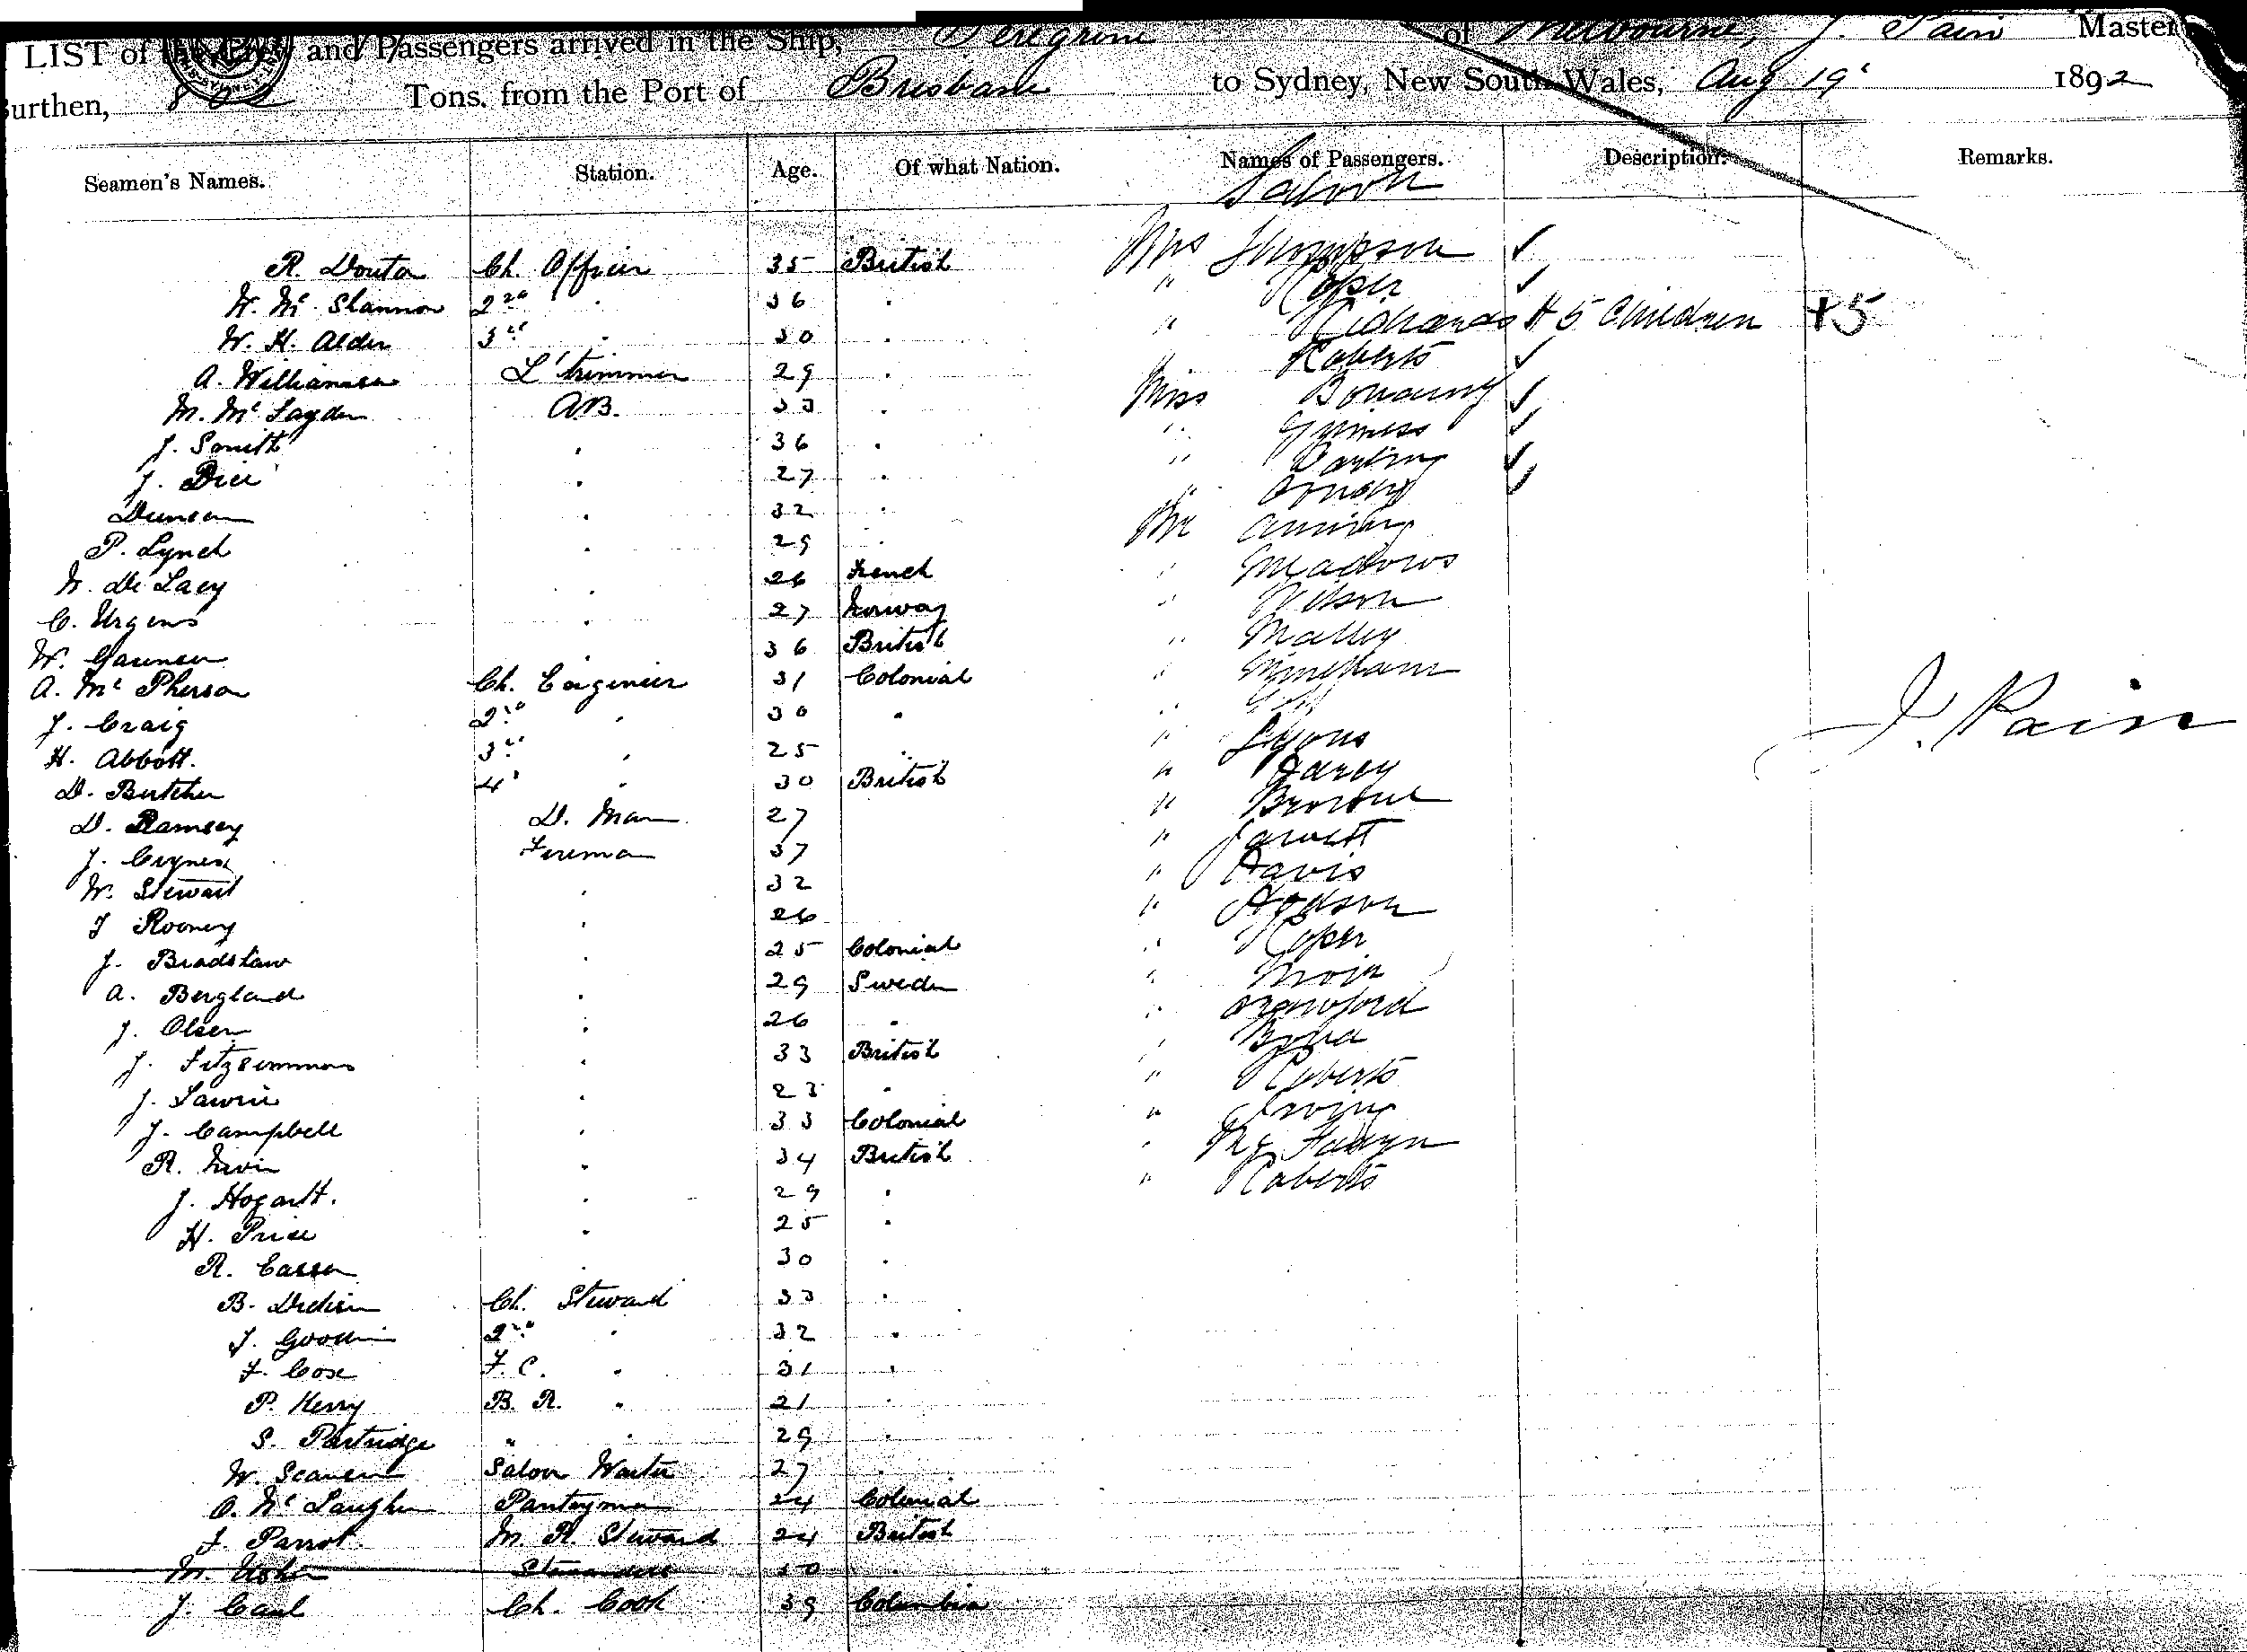 LIST of the Crew and Passengers arrived in the Ship, Peregrine of Melbourne, J. Pain Master
Burthen, Tons. from the Port of Brisbane to Sydney, New South Wales, Aug 19 1892
Seamen's Names. Station. Age. Of what Nation. Names of Passengers. Description. Remarks.
Saloon
R. Douton Ch. Officer 35 British Mrs Thompson ✓
W. Mc Shannon 2nd . 36 . " Roper ✓
W. H. Alder 3rd . 30 . " Richards + 5 Children +5
A. Williamson L'trimmer 29 . " Roberts ✓
M. Mc Fayden AB. 33 . Miss ✓
J. Smith . 36 . " Guiness ✓
J. Dice . 27 . " Darling ✓
Duncan . 32 . " ✓
P. Lynch . 29 . Mr Anning
W. De Lacy . 26 French " Meadows
C. Urgens . 27 Norway " Wilson
W. . 36 British " Malley
A. Mc Pherson Ch. Engineer 31 Colonial "
J. Craig 2nd . 30 . "
H. Abbott. 3rd . 25 . " Lyons
D. Butcher 4 . 30 British " Darcy
D. Ramsey D. Man 27 " Browne
J. Fireman 37 "
W. Stewart . 32 " Davis
J Rooney . 26 " Hodson
J. Bradshaw . 25 Colonial " Roper
A. Bergland . 29 Sweden " Moir
J. Olsen . 26 . " Crawford
J. Fitzsimmons . 33 British " Bond
J. Lawrie . 23 . " Roberts
J. Campbell . 33 Colonial " Irving
R. . 34 British " Mc Fadyn
J. Hogartt. . 29 . " Roberts
H. Price . 25 .
R. . 30 .
B. Ch. Steward 33 .
J. Goodwin 2nd . 32 .
F. Cox F. C. . 31 .
P. Kerry B. R. . 21 .
S. Partridge " . 29 .
W. Saloon Waiter 27 .
O. Mc Laughlin Pantryman 24 Colonial
J. Parrot. M. R. Steward 24 British
M. Usher Stewardess 30 .
J. Ch. Cook 39 Columbia
J. Pain